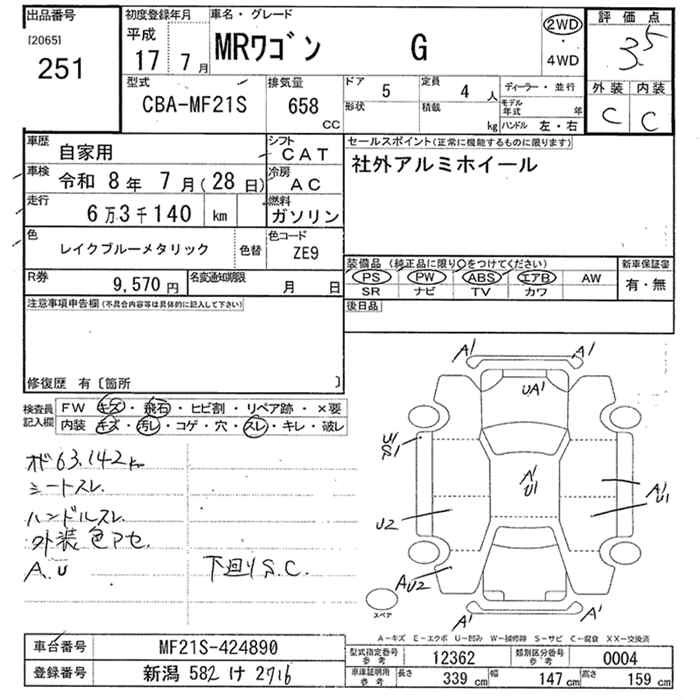 出品番号
[2065]
251
初度登録年月
平成
17 7月
車名・グレード
MRワゴン G
2WD
・
4WD
評価点
3.5
外装 内装
C C
型式
CBA-MF21S
排気量
658
CC
ドア 5
形状
定員 4 人
積載 kg
ディーラー・並行
モデル年式 年
ハンドル 左・右
車歴 自家用
シフト CAT
車検 令和 8年 7月(28日)
冷房 AC
走行 6万3千140 km
燃料 ガソリン
色 レイクブルーメタリック 色替
色コード ZE9
R券 9,570円
名変通知期限 月 日
セールスポイント(正常に機能するものに限ります)
社外アルミホイール
装備品(純正品に限り○をつけてください)
PS PW ABS エアB AW
SR ナビ TV カワ
新車保証書
有・無
後日品
注意事項申告欄(不具合内容等は具体的に記入して下さい)
修復歴 有〔箇所 〕
検査員記入欄
FW キズ・飛石・ヒビ割・リペア跡・×要
内装 キズ・汚レ・コゲ・穴・スレ・キレ・破レ
オド63.142km
シートスレ
ハンドルスレ
外装 色アセ.
A.U 下回りS.C.
A1 A1
UA1
U1
S1
A1
U1
A1
U1
U2
AU2
A1 A1
スペア
A-キズ E-エクボ U-凹み W-補修跡 S-サビ C-腐食 XX-交換済
車台番号 MF21S-424890
登録番号 新潟 582 け 2716
型式指定番号 参考 12362
類別区分番号 参考 0004
車庫証明用 参考 長さ 339 cm 幅 147 cm 高さ 159 cm